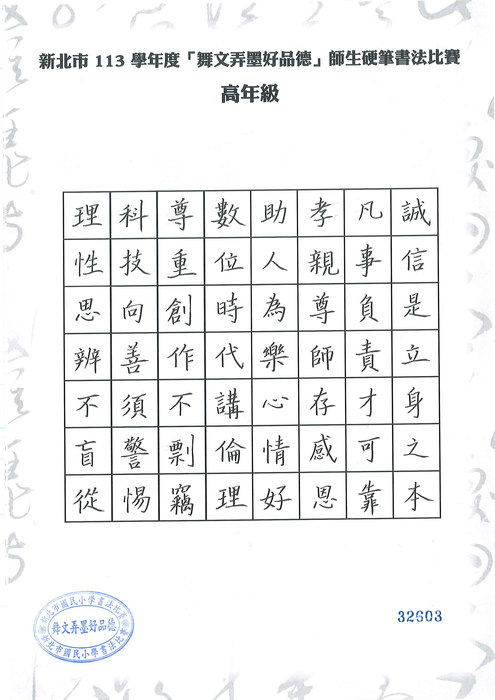 新北市 113 學年度「舞文弄墨好品德」師生硬筆書法比賽
高年級
誠信是立身之本
凡事負責才可靠
孝親尊師存感恩
助人為樂心情好
數位時代講倫理
尊重創作不剽竊
科技向善須警惕
理性思辨不盲從
新北市國民小學書法比賽
舞文弄墨好品德
新北市國民小學書法比賽
32603